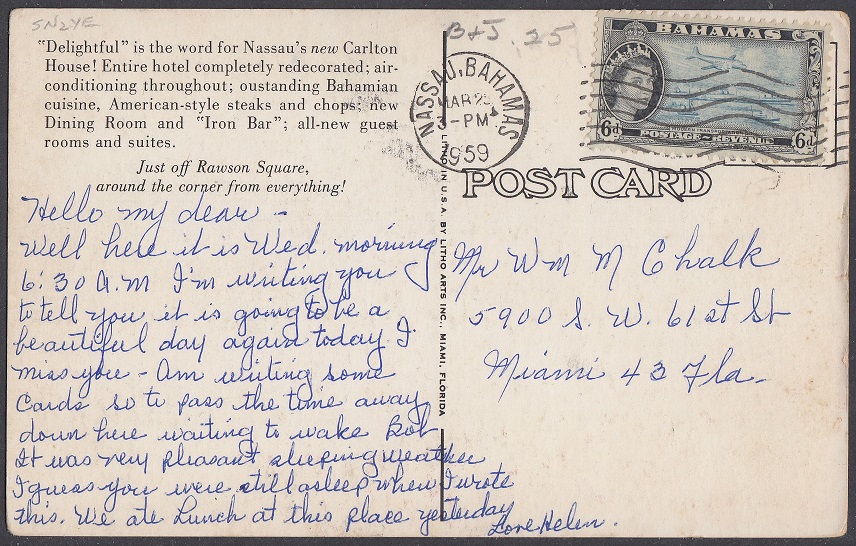 SN2YE
B+J .25
"Delightful" is the word for Nassau's new Carlton
House! Entire hotel completely redecorated; air-
conditioning throughout; oustanding Bahamian
cuisine, American-style steaks and chops; new
Dining Room and "Iron Bar"; all-new guest
rooms and suites.
Just off Rawson Square,
around the corner from everything!
Hello my dear -
Well here it is Wed. morning
6:30 A.M I'm writing you
to tell you it is going to be a
beautiful day again today I
miss you - Am writing some
Cards so to pass the time away
down here waiting to wake Bob
It was very pleasant sleeping weather
I guess you were still asleep when I wrote
this. We ate Lunch at this place yesterday
Love Helen.
IN U.S.A. BY LITHO ARTS INC., MIAMI, FLORIDA
NASSAU, BAHAMAS
MAR 25
3-PM
1959
BAHAMAS
6d
POSTAGE REVENUE
6d
POST CARD
Mr Wm M Chalk
5900 S. W. 61st St
Miami 43 Fla-